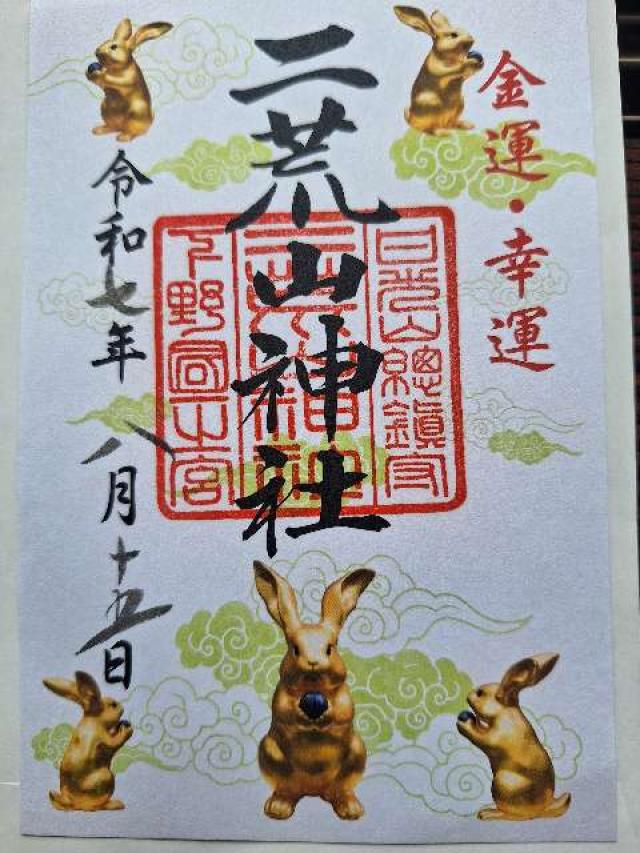 金運・幸運
二荒山神社
日光山總鎮守
下野國一之宮
令和七年八月十五日